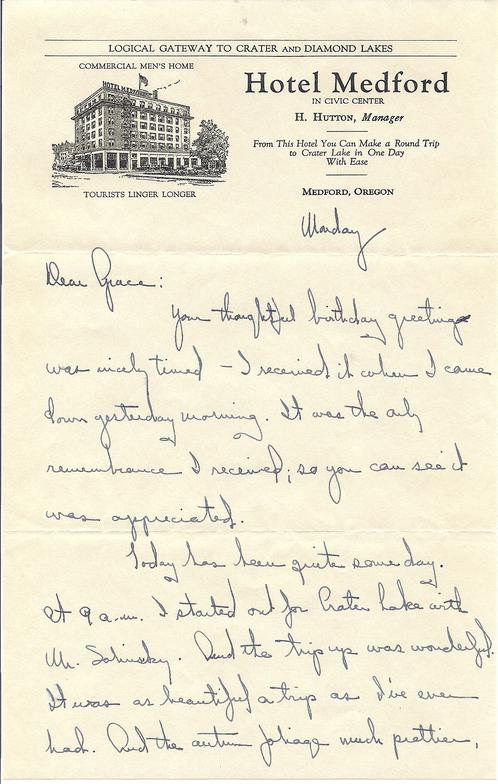 LOGICAL GATEWAY TO CRATER AND DIAMOND LAKES
COMMERCIAL MEN'S HOME
HOTEL MEDFORD
TOURISTS LINGER LONGER
Hotel Medford
IN CIVIC CENTER
H. HUTTON, Manager
From This Hotel You Can Make a Round Trip
to Crater Lake in One Day
With Ease
MEDFORD, OREGON
Monday
Dear Grace:
Your thoughtful birthday greeting
was nicely timed – I received it when I came
down yesterday morning. It was the only
remembrance I received; so you can see it
was appreciated.
Today has been quite some day.
At 9 a.m. I started out for Crater Lake with
Mr. And the trip up was wonderful.
It was as beautiful a trip as I've ever
had. And the autumn foliage much prettier,